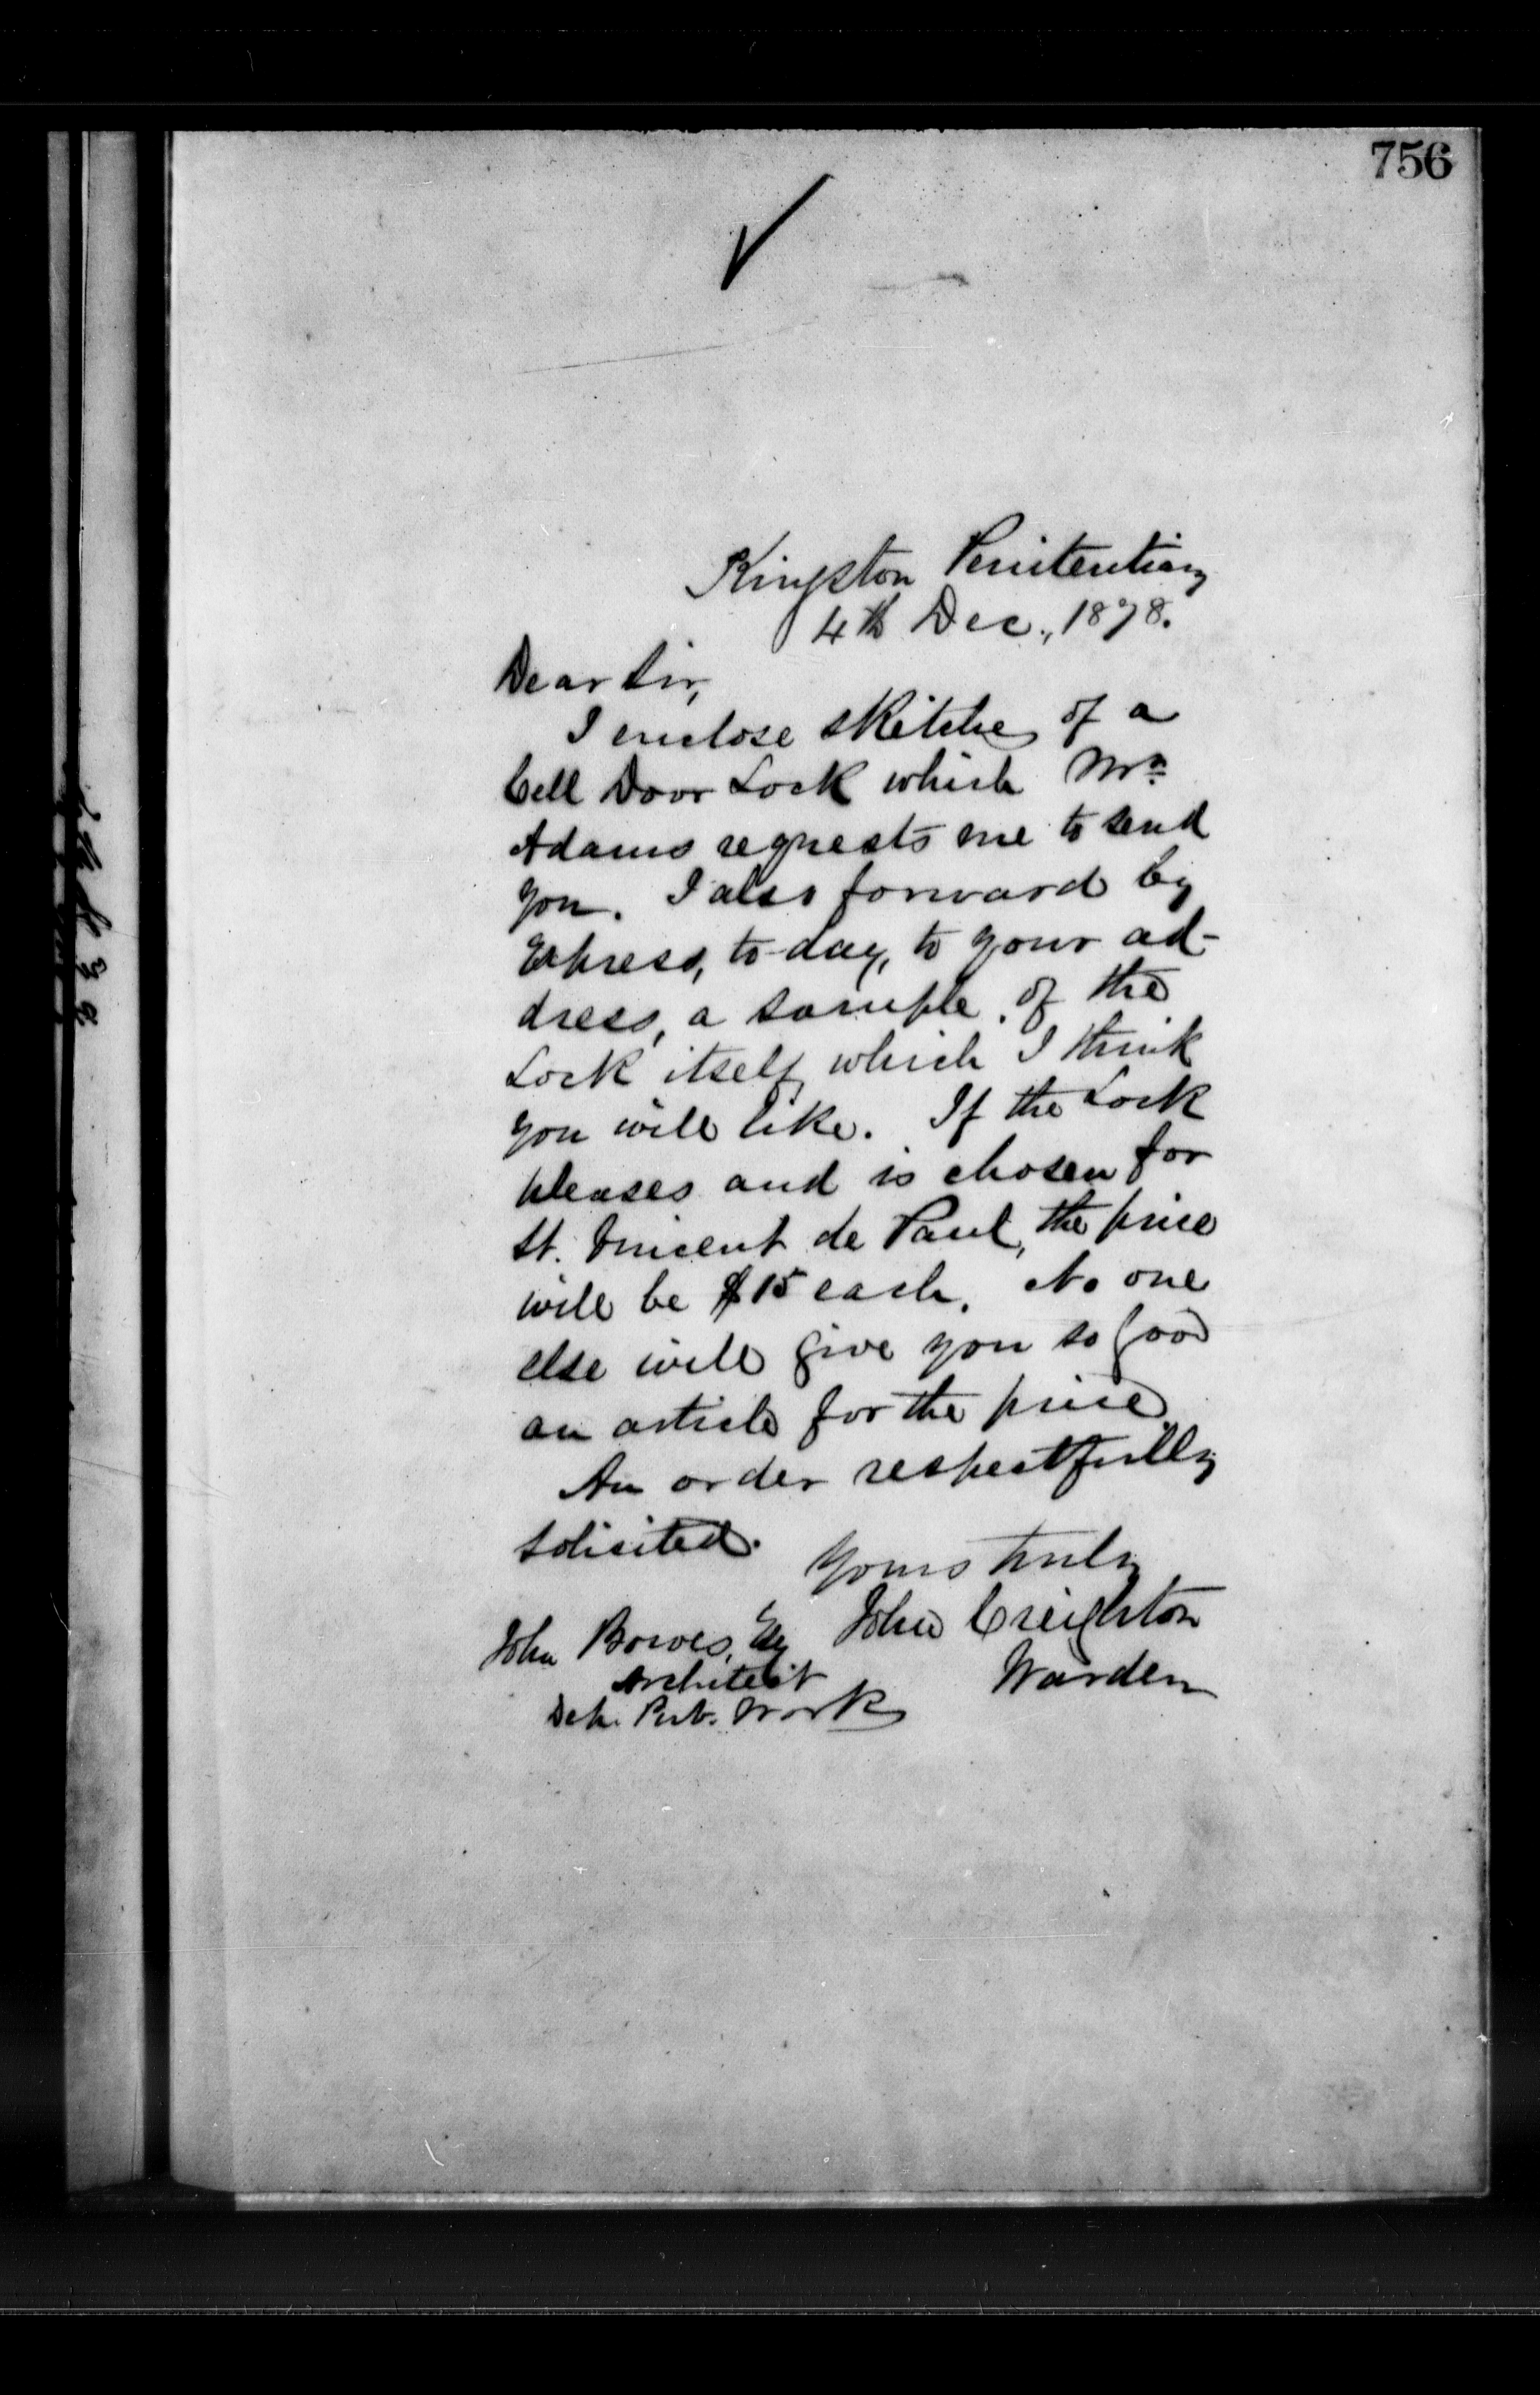 756
Kingston Penitentiary
4th Dec., 1878.
Dear Sir,
I enclose sketches of a
Cell Door Lock which Mr.
Adams requests me to send
you. I also forward by
Express, to-day, to your ad-
dress, a sample of the
Lock itself, which I think
you will like. If the Lock
pleases and is chosen for
St. Vincent de Paul, the price
will be $15 each. No one
else will give you so good
an article for the price.
An order respectfully
solicited.
Yours truly
John Creighton
Warden
John Bowes, Esq
Architect
Dep. Pub. Works